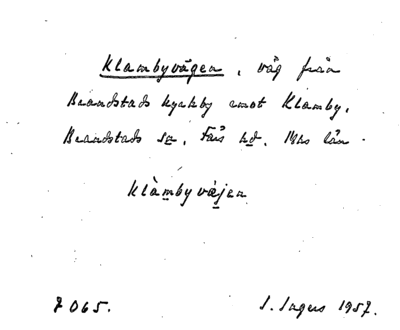 Klambyvägen, väg från
Brandstads kyrkby emot Klamby.
Brandstads sn, Färs hd, Mhs län.
Klàmbyväjen
7065. I. Ingers 1957.